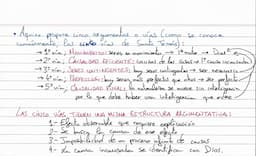 • Aquino propone cinco argumentos o vías (como se conoce
comúnmente, las cinco vías de Santo Tomás):
→ 1ª vía, MOVIMIENTO: seres en movimiento → 1º motor → Dios
→ 2ª vía, CAUSALIDAD EFICIENTE: causas de las cosas → 1ª causa incausada
→ 3ª vía, SERES CONTINGENTES: hay seres contingentes → ser necesario
→ 4ª vía, PERFECCIÓN: hay seres más perfectos que otros → ser perfecto
→ 5ª vía, CAUSALIDAD FINAL: la naturaleza se mueve sin inteligencia
por lo que debe haber una inteligencia que
LAS CINCO VÍAS TIENEN UNA MISMA ESTRUCTURA ARGUMENTATIVA:
1- Efecto observable que requiere explicación
2- Se busca la causa de ese efecto
3- Imposibilidad de un proceso infinito de causas
4- La causa incausada se identifica con Dios.